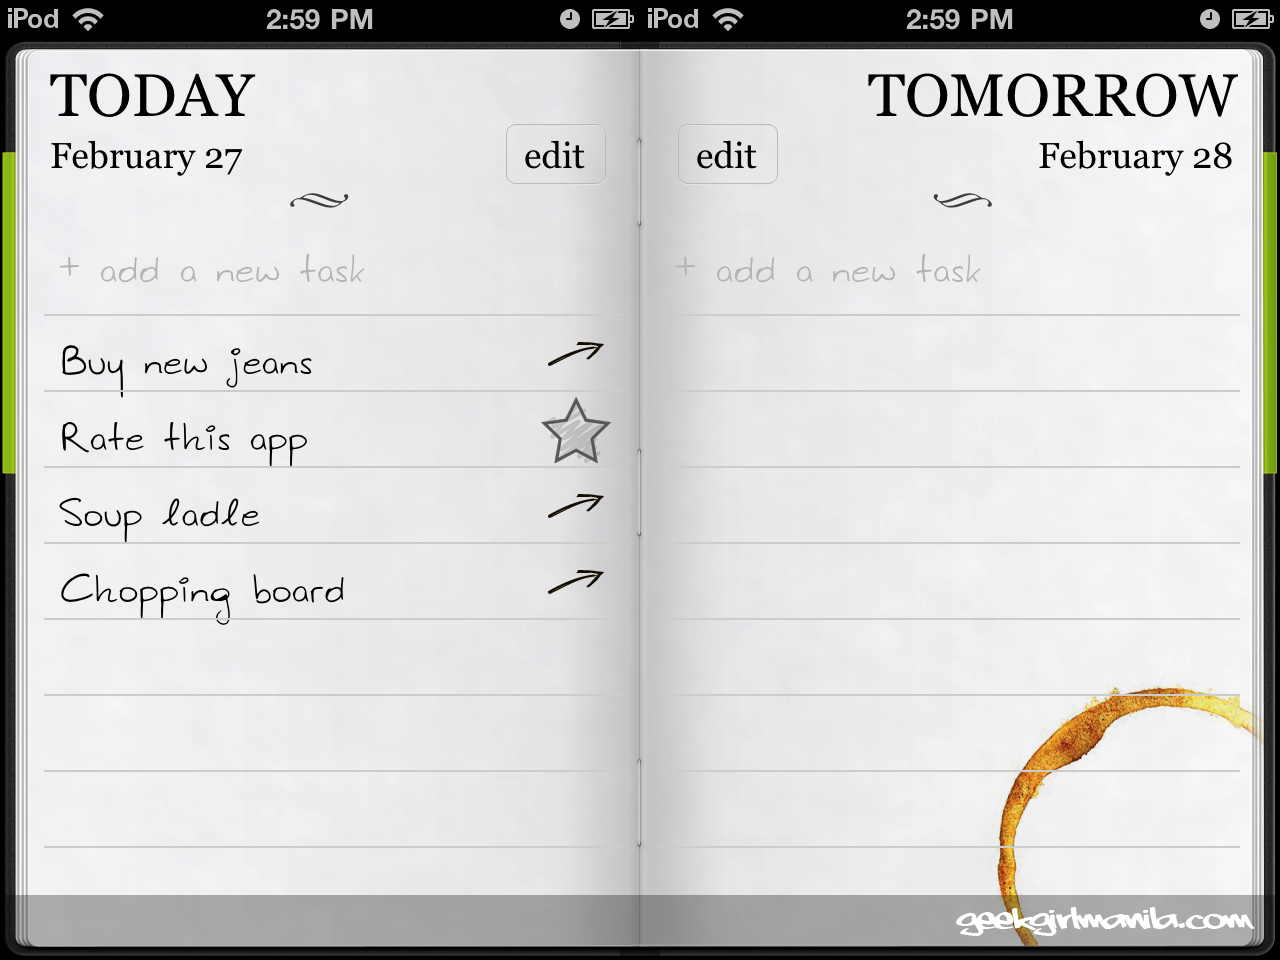 iPod 2:59 PM
TODAY
February 27
edit
+ add a new task
Buy new jeans
Rate this app
Soup ladle
Chopping board
iPod 2:59 PM
TOMORROW
edit
February 28
+ add a new task
geekgirlmanila.com